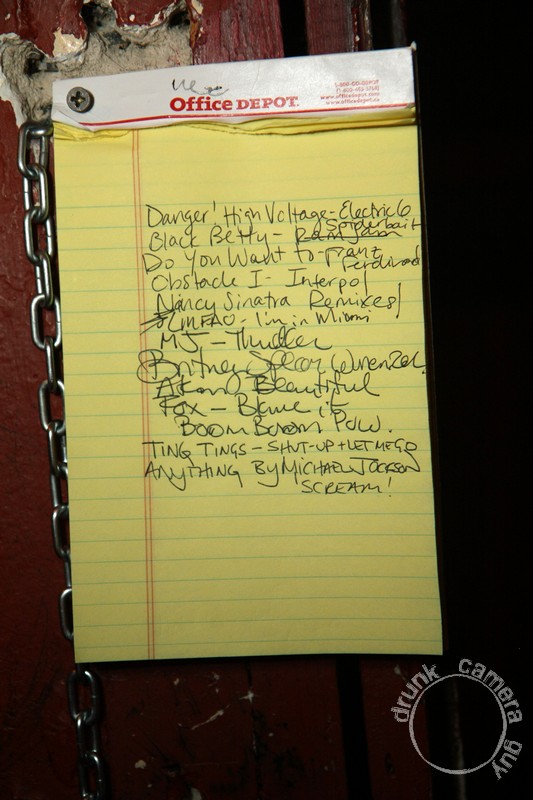 Office DEPOT.
1-800-GO-DEPOT
www.officedepot.com
Danger! High Voltage - Electric 6
Black Betty - Ram Jam Spiderbait
Do You Want to - Franz Ferdinand
Obstacle 1 - Interpol
Nancy Sinatra Remixes!
LMFAO - I'm in Miami
MJ - Thriller
Britney Spears
Akon Beautiful
Fox - Blame it
Boom Boom Pow.
TING TINGS - SHUT-UP + LET ME GO
ANYTHING BY MICHAEL JACKSON
SCREAM!
drunk camera guy